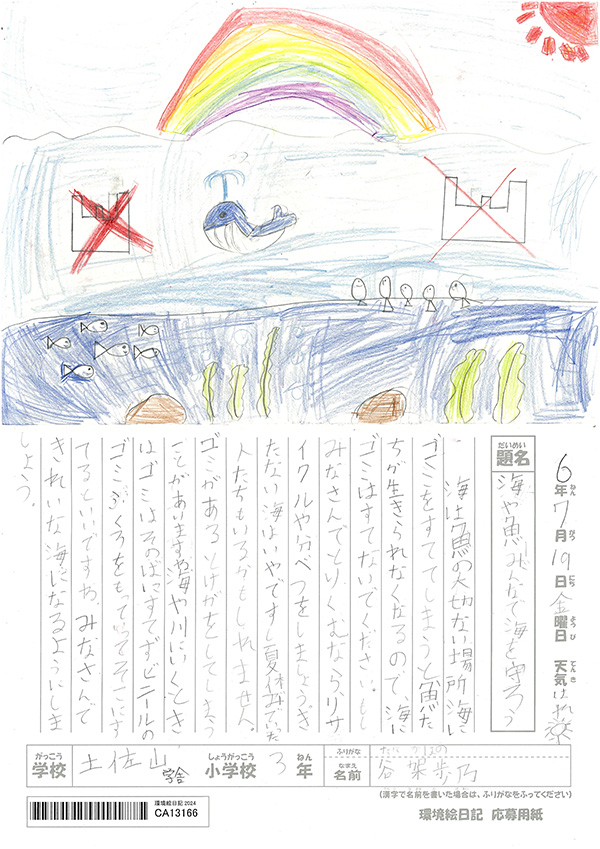 6年7月19日金曜日 天気はれ
ねん がつ にち ようび てんき
だいめい
題名 海や魚みんなで海を守ろう
海は魚の大切ない場所、海に
ゴミをすててしまうと魚た
ちが生きられなくなるので、海に
ゴミはすてないでください。もし
みなさんでとりくむなら、リサ
イクルや分べつをしましょうき
たない海はいやですし夏休みでいった
人たちもいるかもしれません。
ゴミがあるとけがをしてしまう
ことがありますね海や川にいくとき
はゴミはそのばにすてずビニールの
ゴミぶくろをもっていってそこにす
てるといいですね。みなさんで
きれいな海になるようにしま
しょう。
がっこう しょうがっこう ねん ふりがな
学校 土佐山学舎 小学校 3年
なまえ
名前 谷 歩乃
(漢字で名前を書いた場合は、ふりがなをふってください)
環境絵日記2024
CA13166
環境絵日記 応募用紙